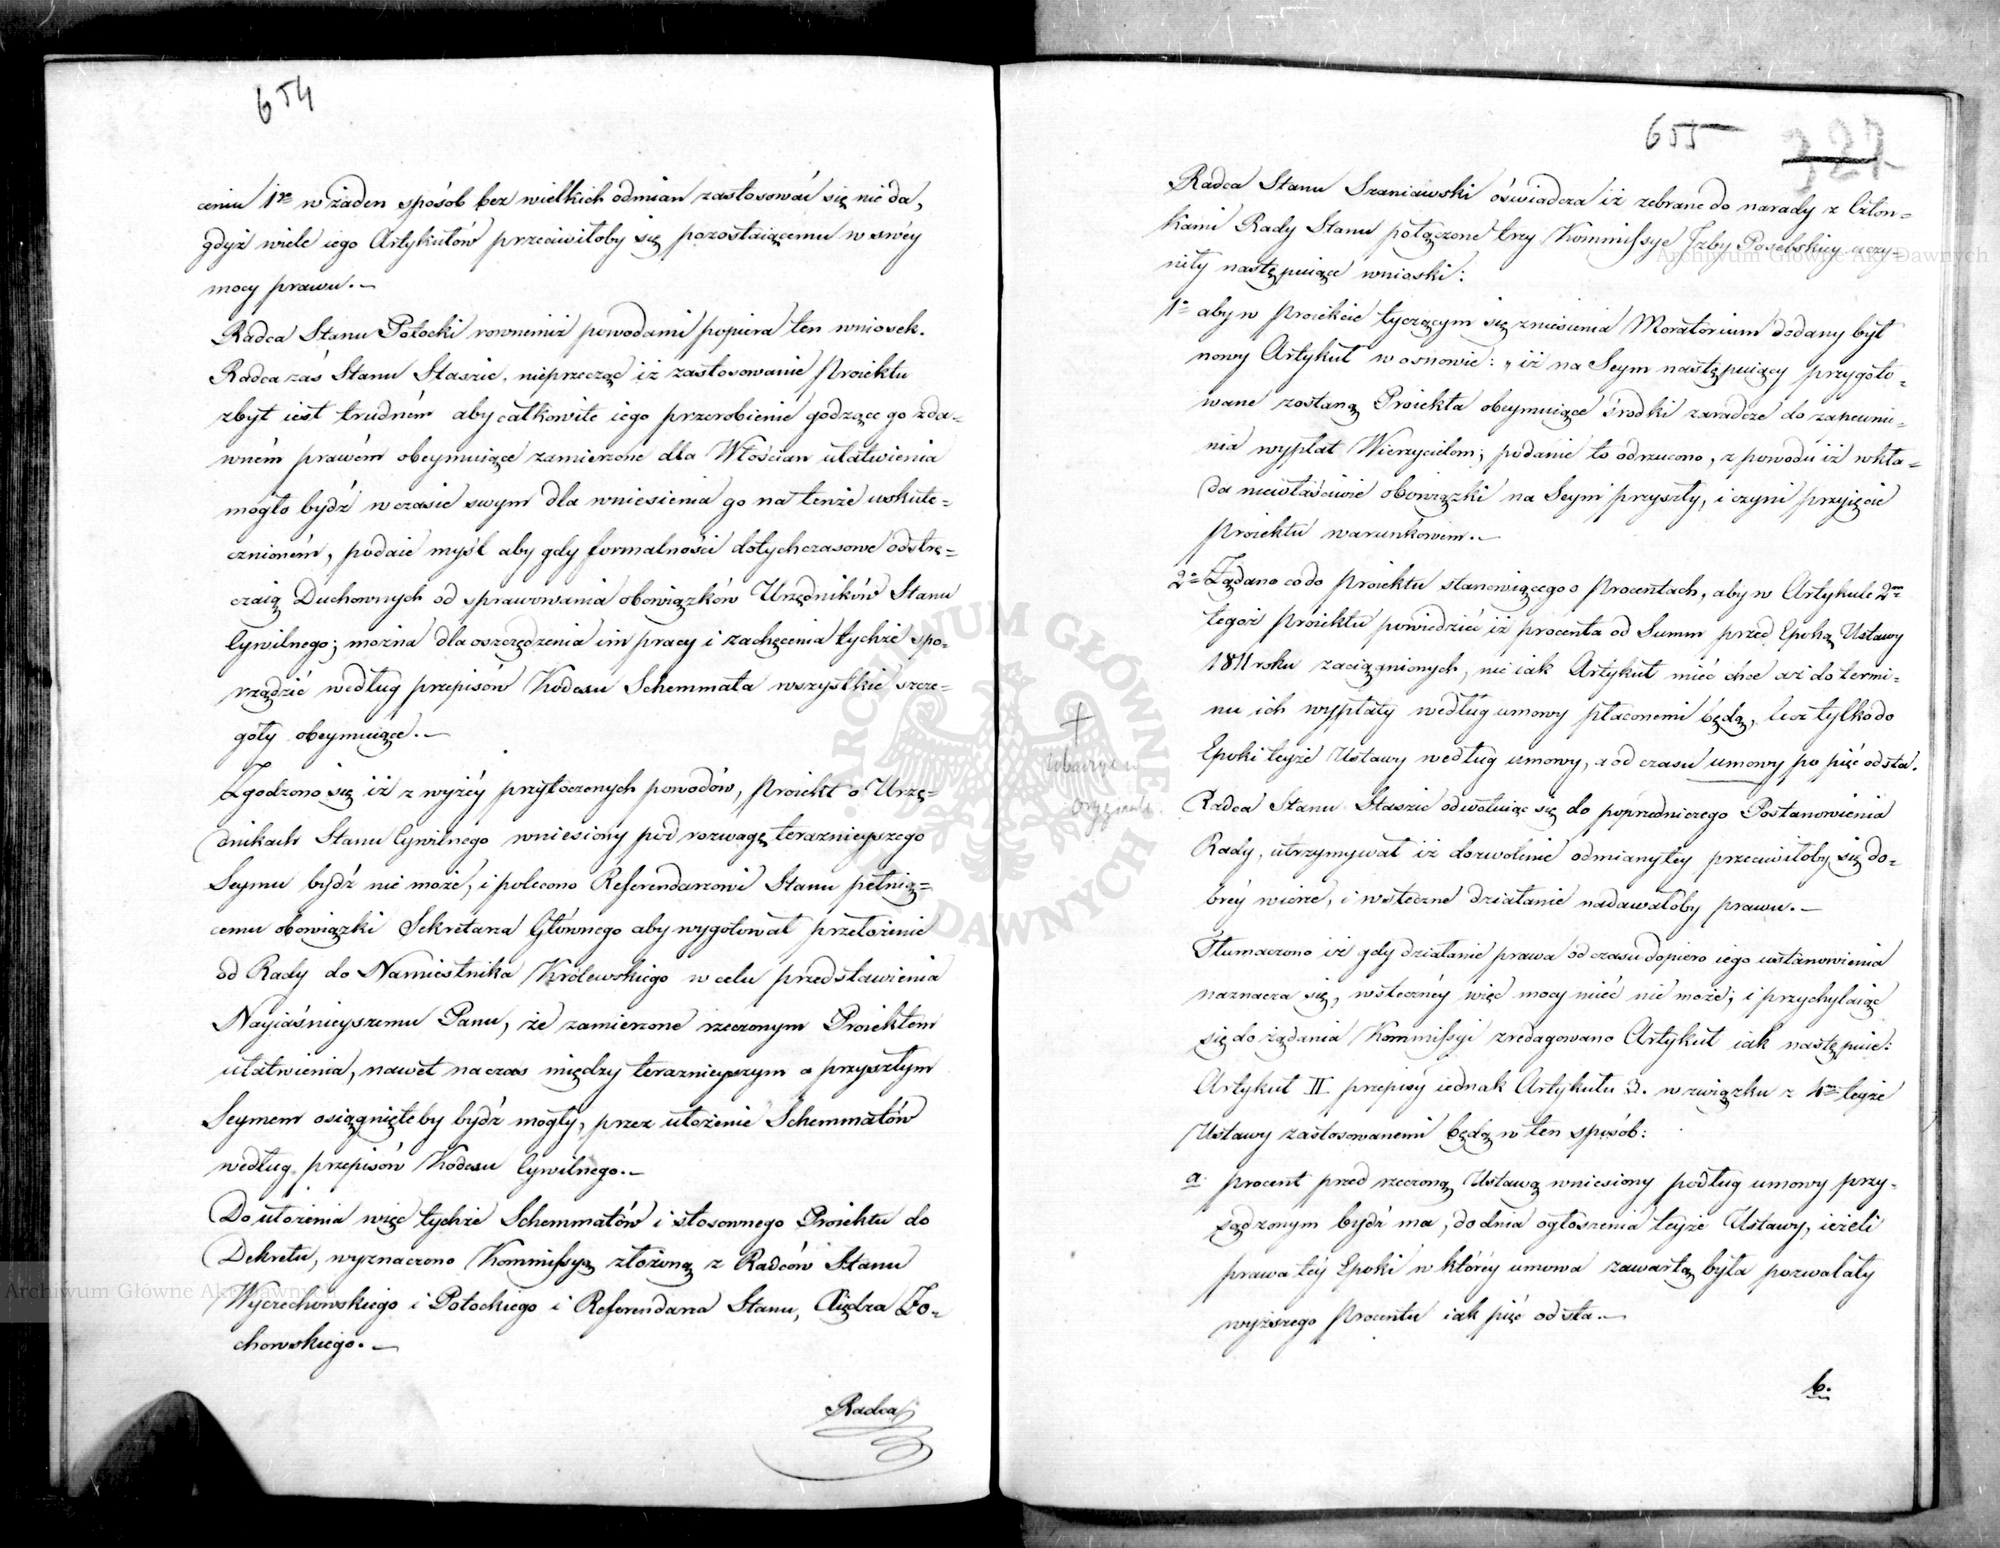 654
ceniu 1re w żaden sposób bez wielkich odmian zastosować się nie da,
gdyż wiele iego Artykułów przeciwiłoby się pozostaiącemu w swey
mocy prawu. —
Radca Stanu Potocki rownemiż powodami popiera ten wniosek.
Radca zaś Stanu Staszic, nieprzecząc iż zastosowanie Proiektu
zbyt iest trudném aby całkowite iego przerobienie godzące go z da-
wném prawém obeymuiące zamierzone dla Włościan ułatwienia
mogło bydź w czasie swym dla wniesienia go na tenże uskute-
cznioném, podaie myśl aby gdy formalności dotychczasowe odstrę-
czaią Duchownych od sprawowania obowiązków Urzędników Stanu
Cywilnego; można dla oszczędzenia im pracy i zachęcenia tychże spo-
rządzić według przepisów Kodexu Schemmata wszystkie szcze-
góły obeymuiące. —
Zgodzono się iż z wyżéy przytoczonych powodów, Proiekt o Urzę-
dnikach Stanu Cywilnego wniesiony pod rozwagę teraznieyszego
Seymu bydź nie może, i polecono Referendarzowi Stanu pełnią-
cemu obowiązki Sekretarza Głównego aby wygotował przełożenie
od Rady do Namiestnika Królewskiego w celu przedstawienia
Nayiaśnieyszemu Panu, że zamierzone rzeczonym Proiektem
ułatwienia, nawet na czas między teraznieyszym a przyszłym
Seymem osiągnięteby bydź mogły, przez ułożenie Schemmatów
według przepisów Kodexu Cywilnego. —
Do ułożenia więc tychże Schemmatów i stosownego Proiektu do
Dekretu, wyznaczono Kommissyą złożoną z Radców Stanu
Wyczechowskiego i Potockiego i Referendarza Stanu, Xiędza Żo-
chowskiego. —
Radca
655
Radca Stanu Szaniawski oświadcza iż zebrane do narady z Człon-
kami Rady Stanu połączone trzy Kommissye Izby Poselskiey uczy-
niły następuiące wnioski:
1o aby w Proiekcie tyczącym się zniesienia Moratorium dodany był
nowy Artykuł w osnowie: „ iż na Seym następuiący przygoto-
wane zostaną Proiekta obeymuiące środki zaradcze do zapewnie-
nia wypłat Wierzycielom; podanie to odrzucono, z powodu iż wkła-
da niewłaściwie obowiązki na Seym przyszły, i czyni przyięcie
Proiektu warunkowem. —
2o Żądano co do Proiektu stanowiącego o Procentach, aby w Artykule 2m
tegoż Proiektu powiedzieć iż procenta od Summ przed Epoką Ustawy
1811 roku zaciągnionych, nie iak Artykuł mieć chce aż do termi-
nu ich wypłaty według umowy płaconemi będą, lecz tylko do
Epoki teyże Ustawy według umowy, a od czasu umowy po pięć od sta.
+
w oryginale.
Radca Stanu Staszic odwołuiąc się do poprzedniczego Postanowienia
Rady, utrzymywał iż dozwolenie odmiany tey przeciwiłoby się do-
bréy wierze, i wsteczne działanie nadawałoby prawu. —
Tłumaczono iż gdy działanie prawa od czasu dopiero iego ustanowienia
naznacza się, wstecznéy więc mocy mieć nie może; i przychylaiąc
się do żądania Kommissyi zredagowano Artykuł iak następuie:
Artykuł II. przepisy iednak Artykułu 3. w związku z 4m teyże
Ustawy zastosowanemi będą w ten sposób:
a. procent przed rzeczoną Ustawą wniesiony podług umowy przy-
sądzonym bydź ma, do dnia ogłoszenia teyże Ustawy, ieżeli
prawa téy Epoki w któréy umowa zawartą była pozwalały
wyższego Procentu iak pięć od sta. —
b.
Archiwum Główne Akt Dawnych
Archiwum Główne Akt Dawnych
ARCHIWUM GŁÓWNE AKT DAWNYCH